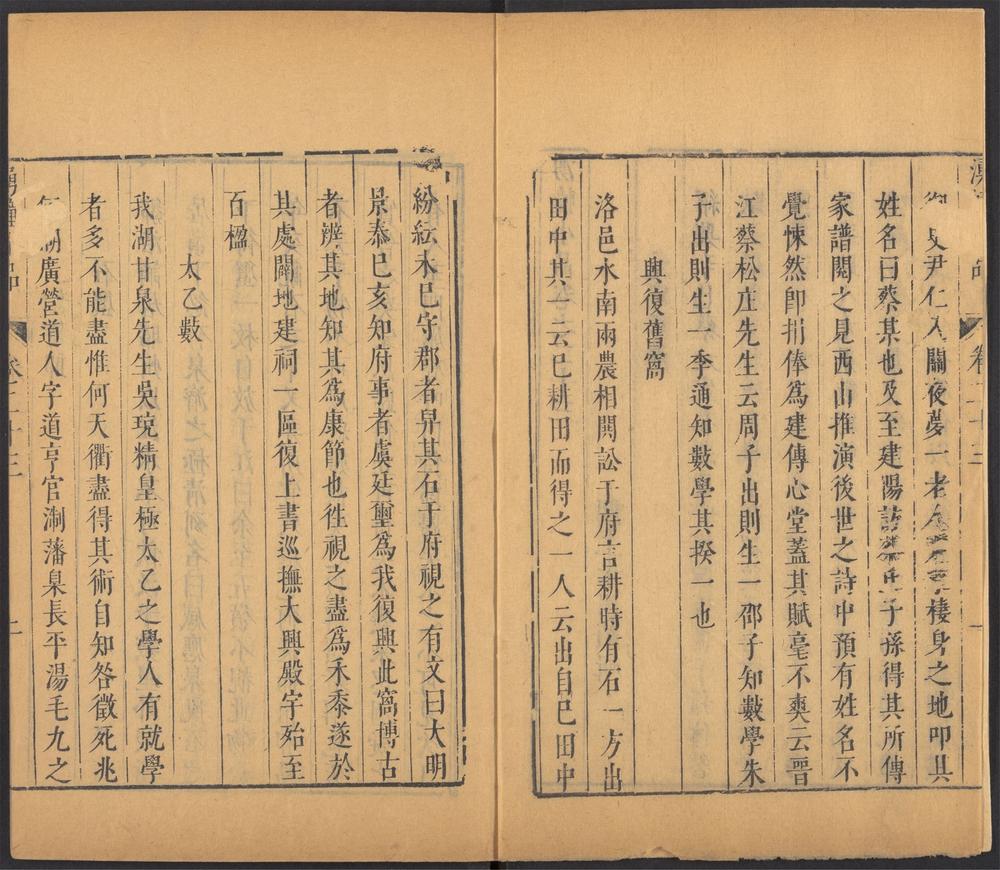 史尹仁入關夜夢一老人棲身之地叩其
姓名曰蔡某也及至建陽訪蔡氏子孫得其所傳
家譜閱之見西山推演後世之詩中預有姓名不
覺悚然卽捐俸爲建傳心堂蓋其賦毫不爽云晉
江蔡松庄先生云周子出則生一邵子知數學朱
子出則生一季通知數學其揆一也
興復舊窩
洛邑水南兩農相鬨訟于府言耕時有石一方出
田中其一云已耕田而得之一人云出自已田中
卷二十三
一
紛紜未已守郡者舁其石于府視之有文曰大明
景泰巳亥知府事者虞廷璽爲我復興此窩博古
者辨其地知其爲康節也徃視之盡爲禾黍遂於
其處闢地建祠一區復上書巡撫大興殿宇殆至
百楹
太乙數
我湖甘泉先生吳珫精皇極太乙之學人有就學
者多不能盡惟何天衢盡得其術自知咎徵死兆
湖廣營道人字道亨官淛藩臬長平湯毛九之
卷二十三
二